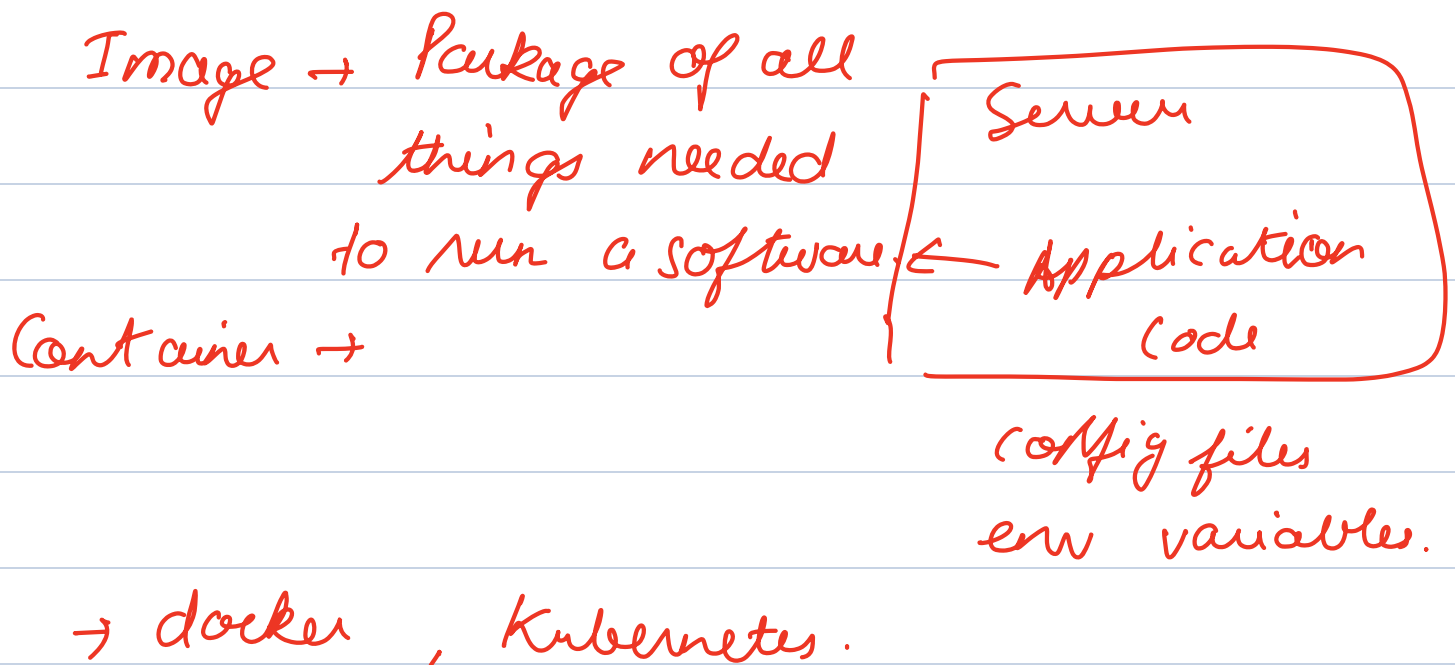 Image → Package of all
things needed
to run a software
Server
← Application
Code
Container →
config files
env variables.
→ docker, Kubernetes.